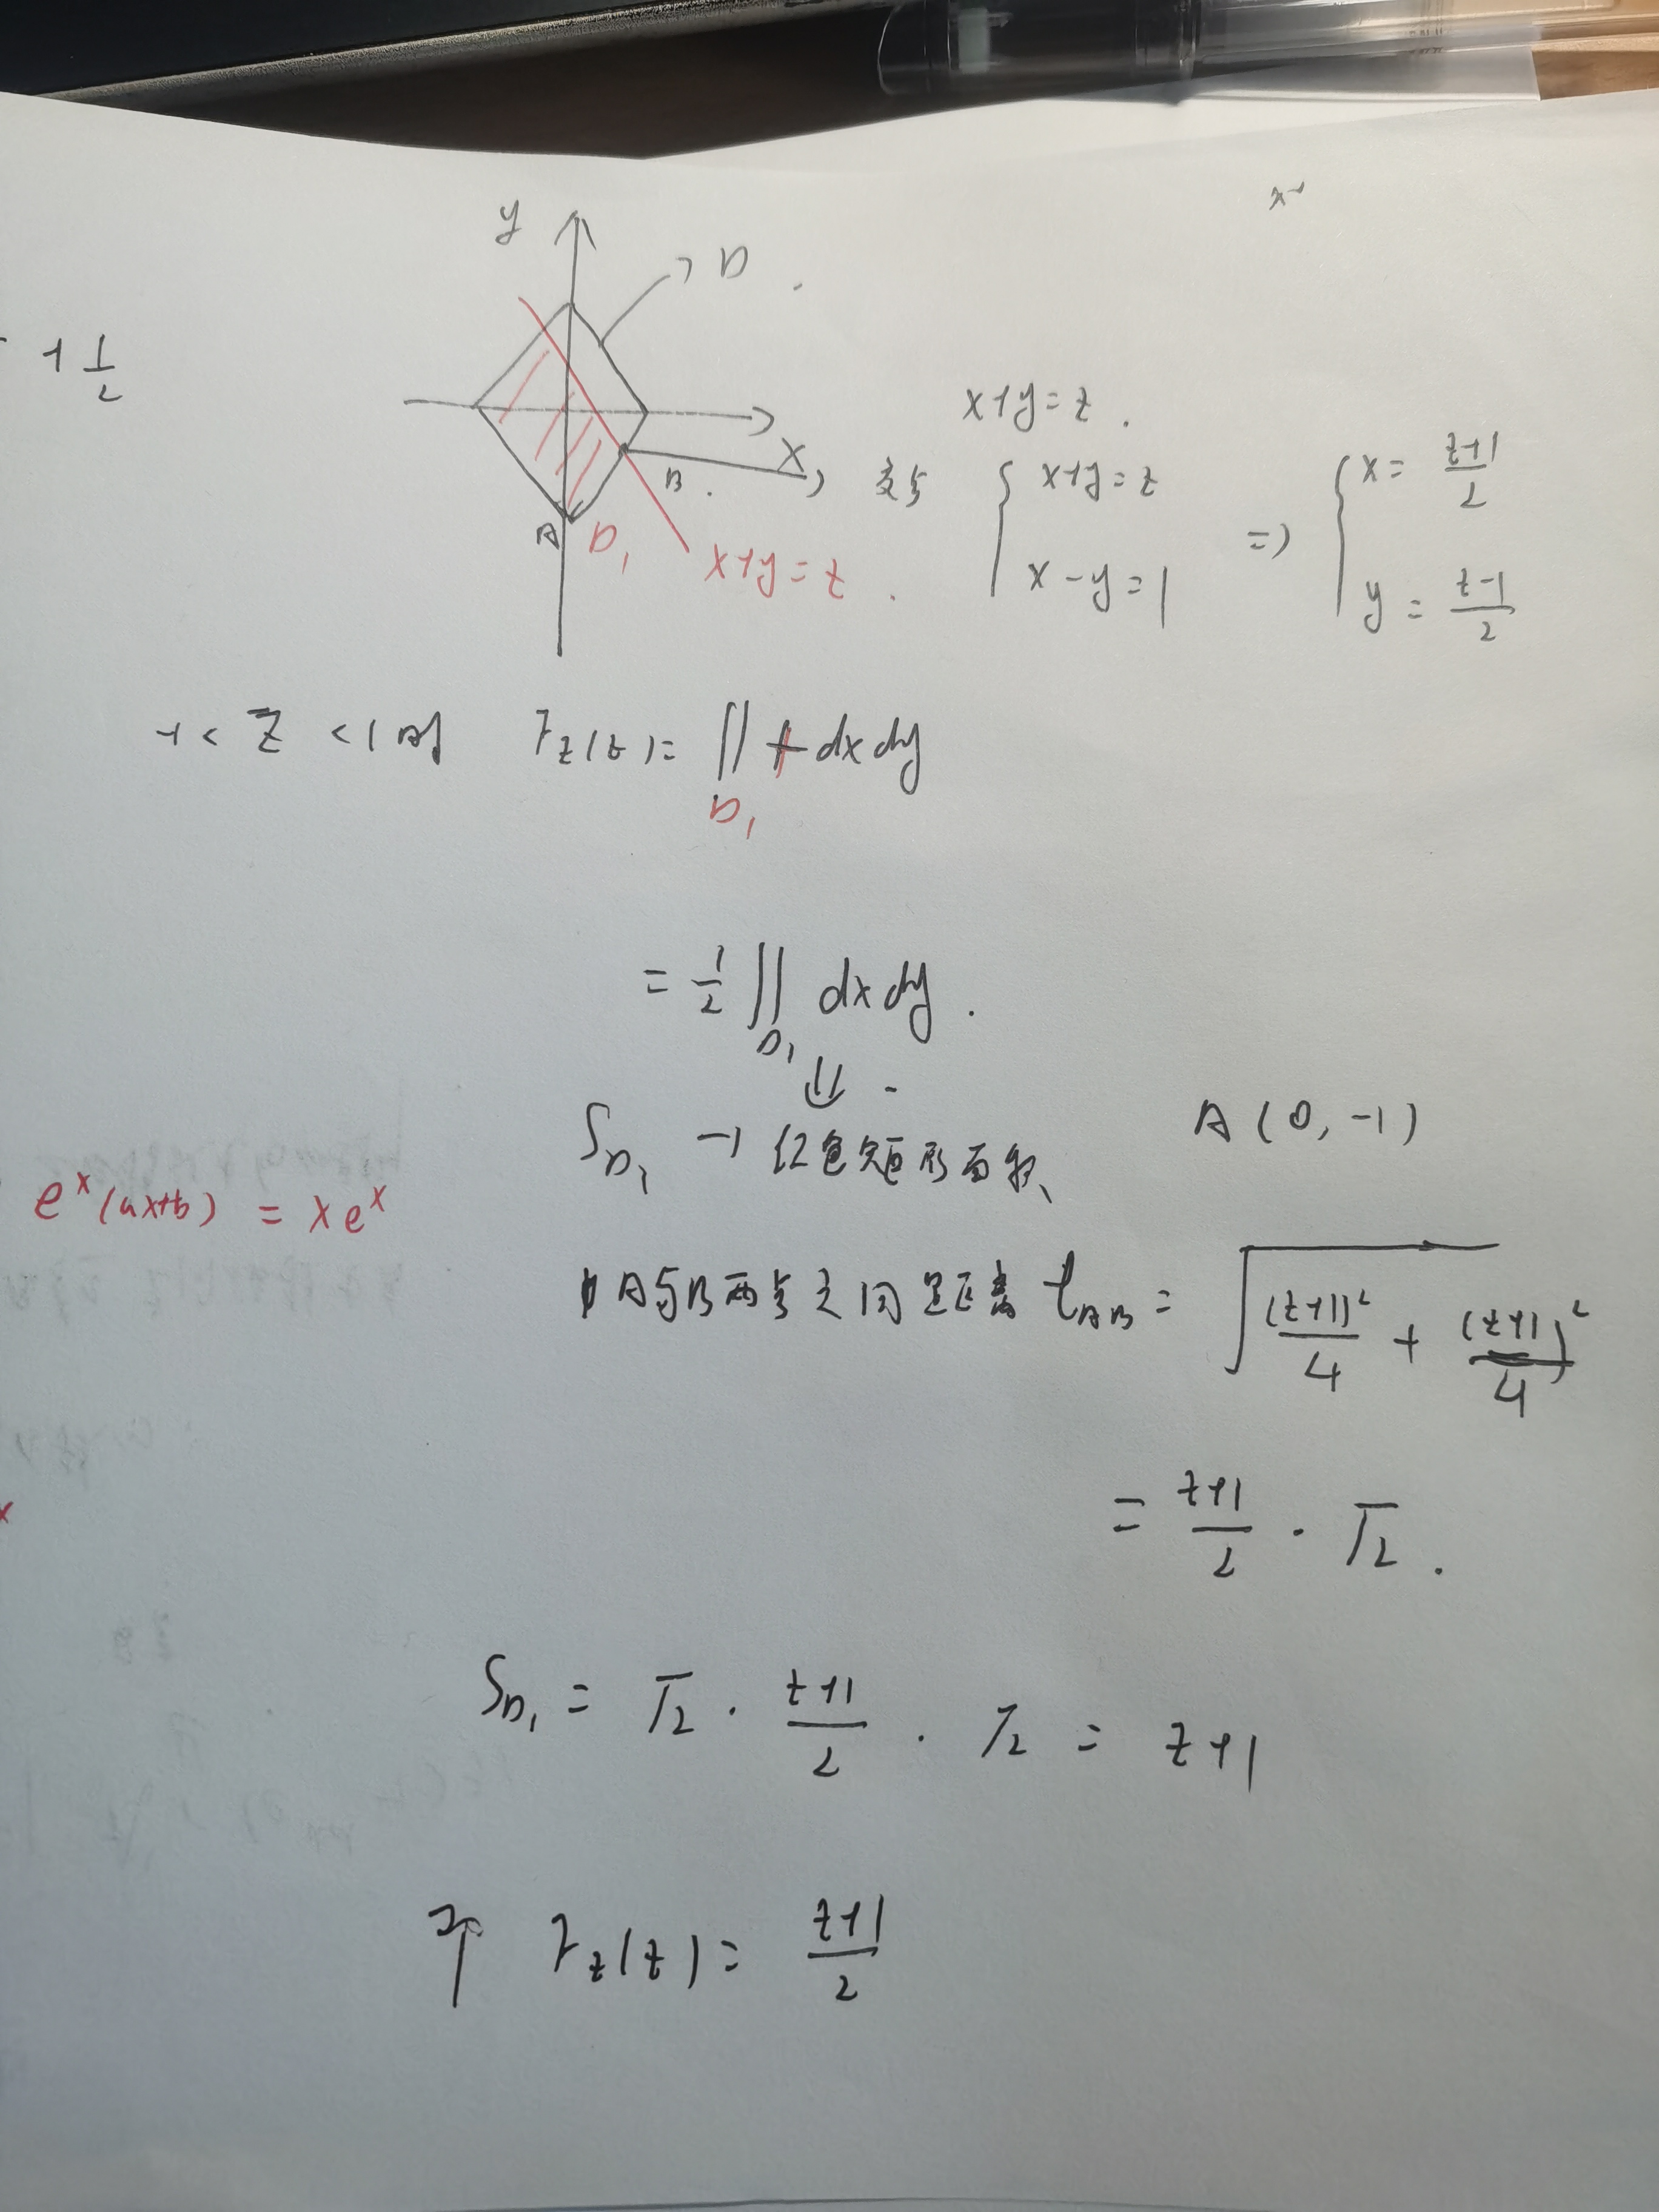 x
y
D
+ 1/2
x+y=z.
X
B.
交点 { x+y=z
x-y=1
=> { x= (z+1)/2
y= (z-1)/2
A
D₁
x+y=z.
-1< Z <1时 F_Z(z)= ∬_{D₁} f dxdy
= 1/2 ∬_{D₁} dxdy.
⇓
S_{D₁} → 红色矩形面积
A(0,-1)
e^x(ax+b) = xe^x
A与B两点之间距离 l_{AB} = √((z+1)²/4 + (z+1)²/4)
= (z+1)/2 · √2.
x
S_{D₁} = √2 · (z+1)/2 · √2 = z+1
F_Z(z)= (z+1)/2